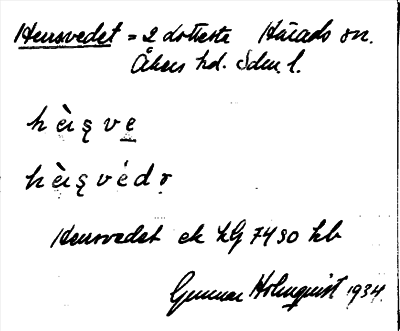 Hensvedet = 2 dotterste Härads sn.
Åkers hd. Sdm. l.
hèn̥sve
hèn̥svédr̥
Hensvedet ek hg 7430 hb
Gunnar Holmquist 1934.